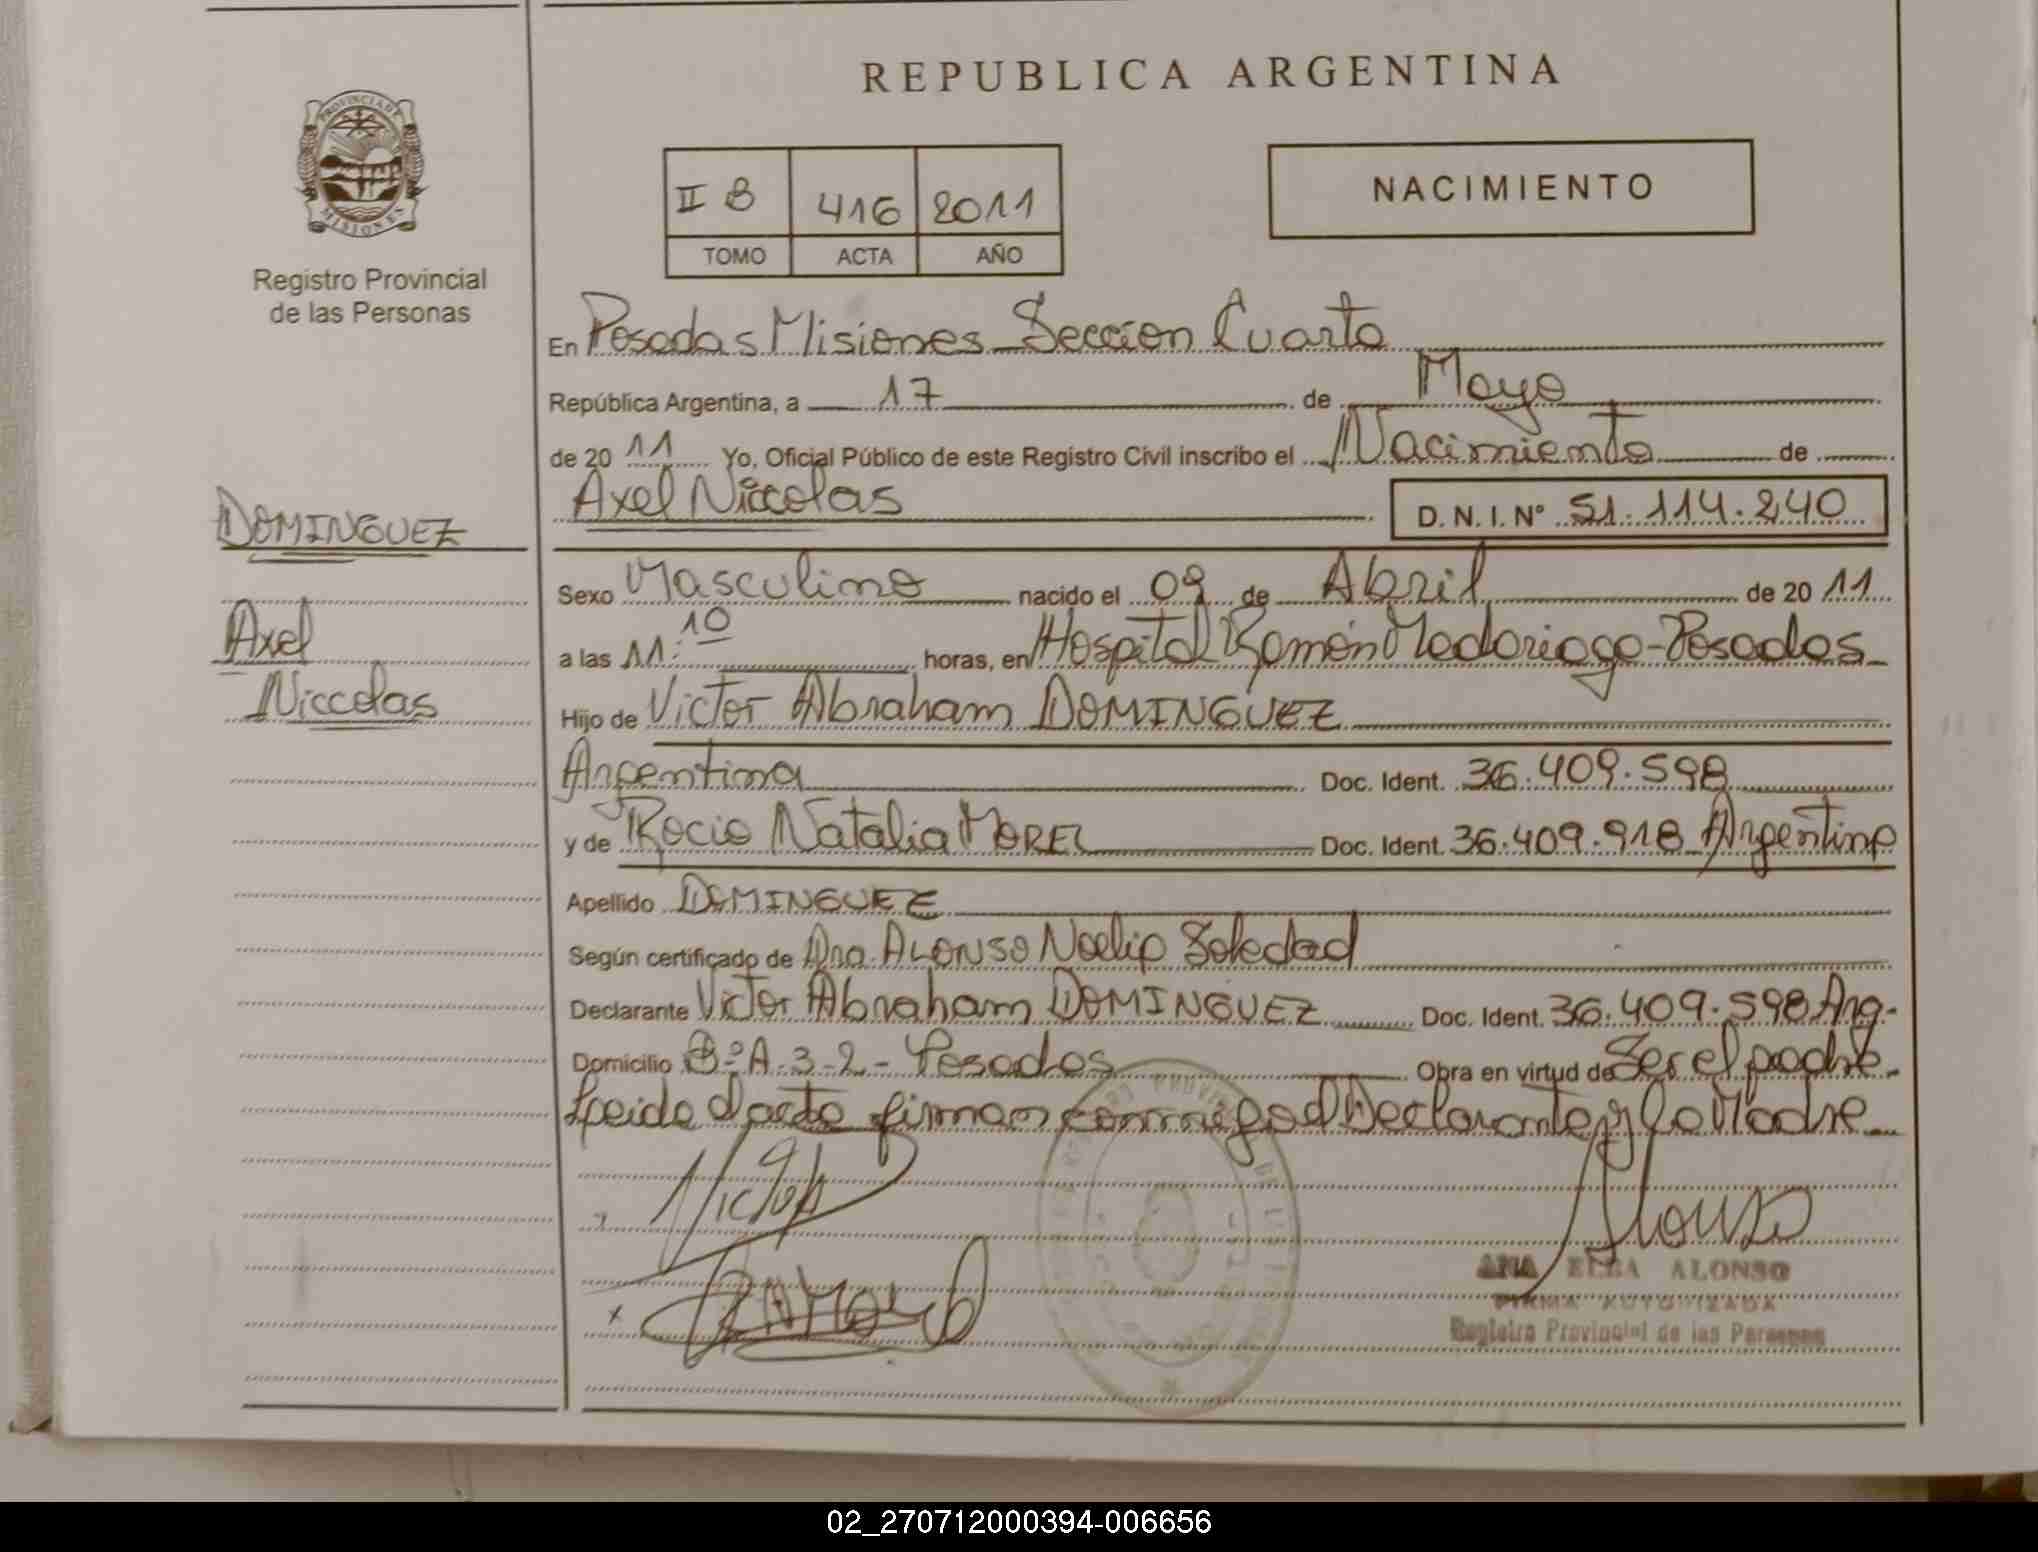 REPUBLICA ARGENTINA
PROVINCIA DE
MISIONES
Registro Provincial
de las Personas
II B 416 2011
TOMO ACTA AÑO
NACIMIENTO
En Posadas Misiones Seccion Cuarta
República Argentina, a 17 de Mayo
de 2011 Yo, Oficial Público de este Registro Civil inscribo el Nacimiento de
Axel Niccolas D. N. I. Nº 51.114.240
DOMINGUEZ
Axel
Niccolas
Sexo Masculino nacido el 09 de Abril de 2011
a las 11:10 horas, en Hospital Ramón Madariaga-Posadas
Hijo de Victor Abraham DOMINGUEZ
Argentina Doc. Ident. 36.409.598
y de Rocio Natalia MOREL Doc. Ident. 36.409.918 Argentina
Apellido DOMINGUEZ
Según certificado de Dra. ALONSO Noelia Soledad
Declarante Victor Abraham DOMINGUEZ Doc. Ident. 36.409.598 Arg-
Domicilio Bº A-3-2- Posadas Obra en virtud de Ser el padre-
Leida el acta firman conmigo el Declarante y la Madre
Victor
Alonso
ANA ELBA ALONSO
FIRMA AUTORIZADA
Registro Provincial de las Personas
02_270712000394-006656